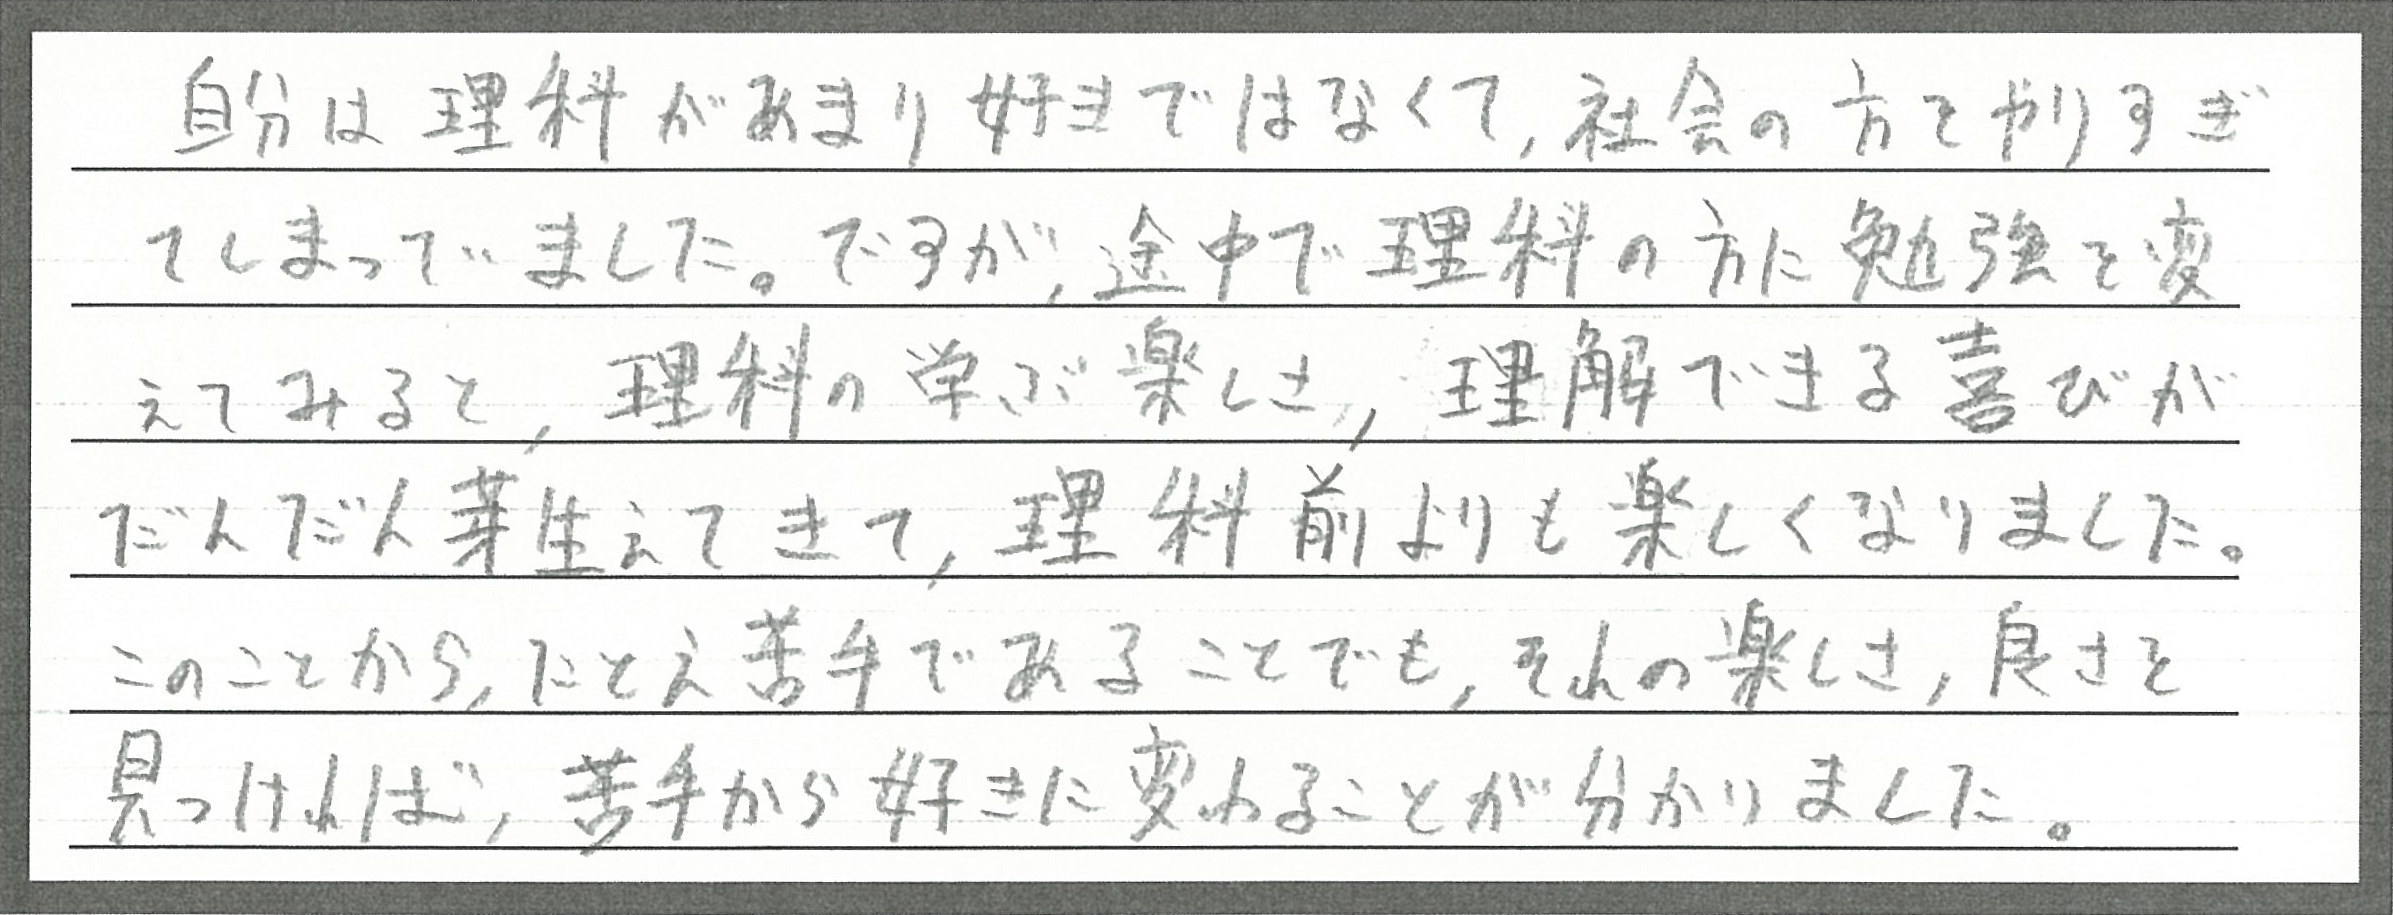 自分は理科があまり好きではなくて,社会の方をやりすぎ
てしまってでました。ですが,途中で理科の方に勉強を変
えてみると,理科の学ぶ楽しさ,理解できる喜びが
だんだん芽生えてきて,理科前よりも楽しくなりました。
このことから,たとえ苦手であることでも,それの楽しさ,良さを
見つければ,苦手から好きに変わることが分かりました。